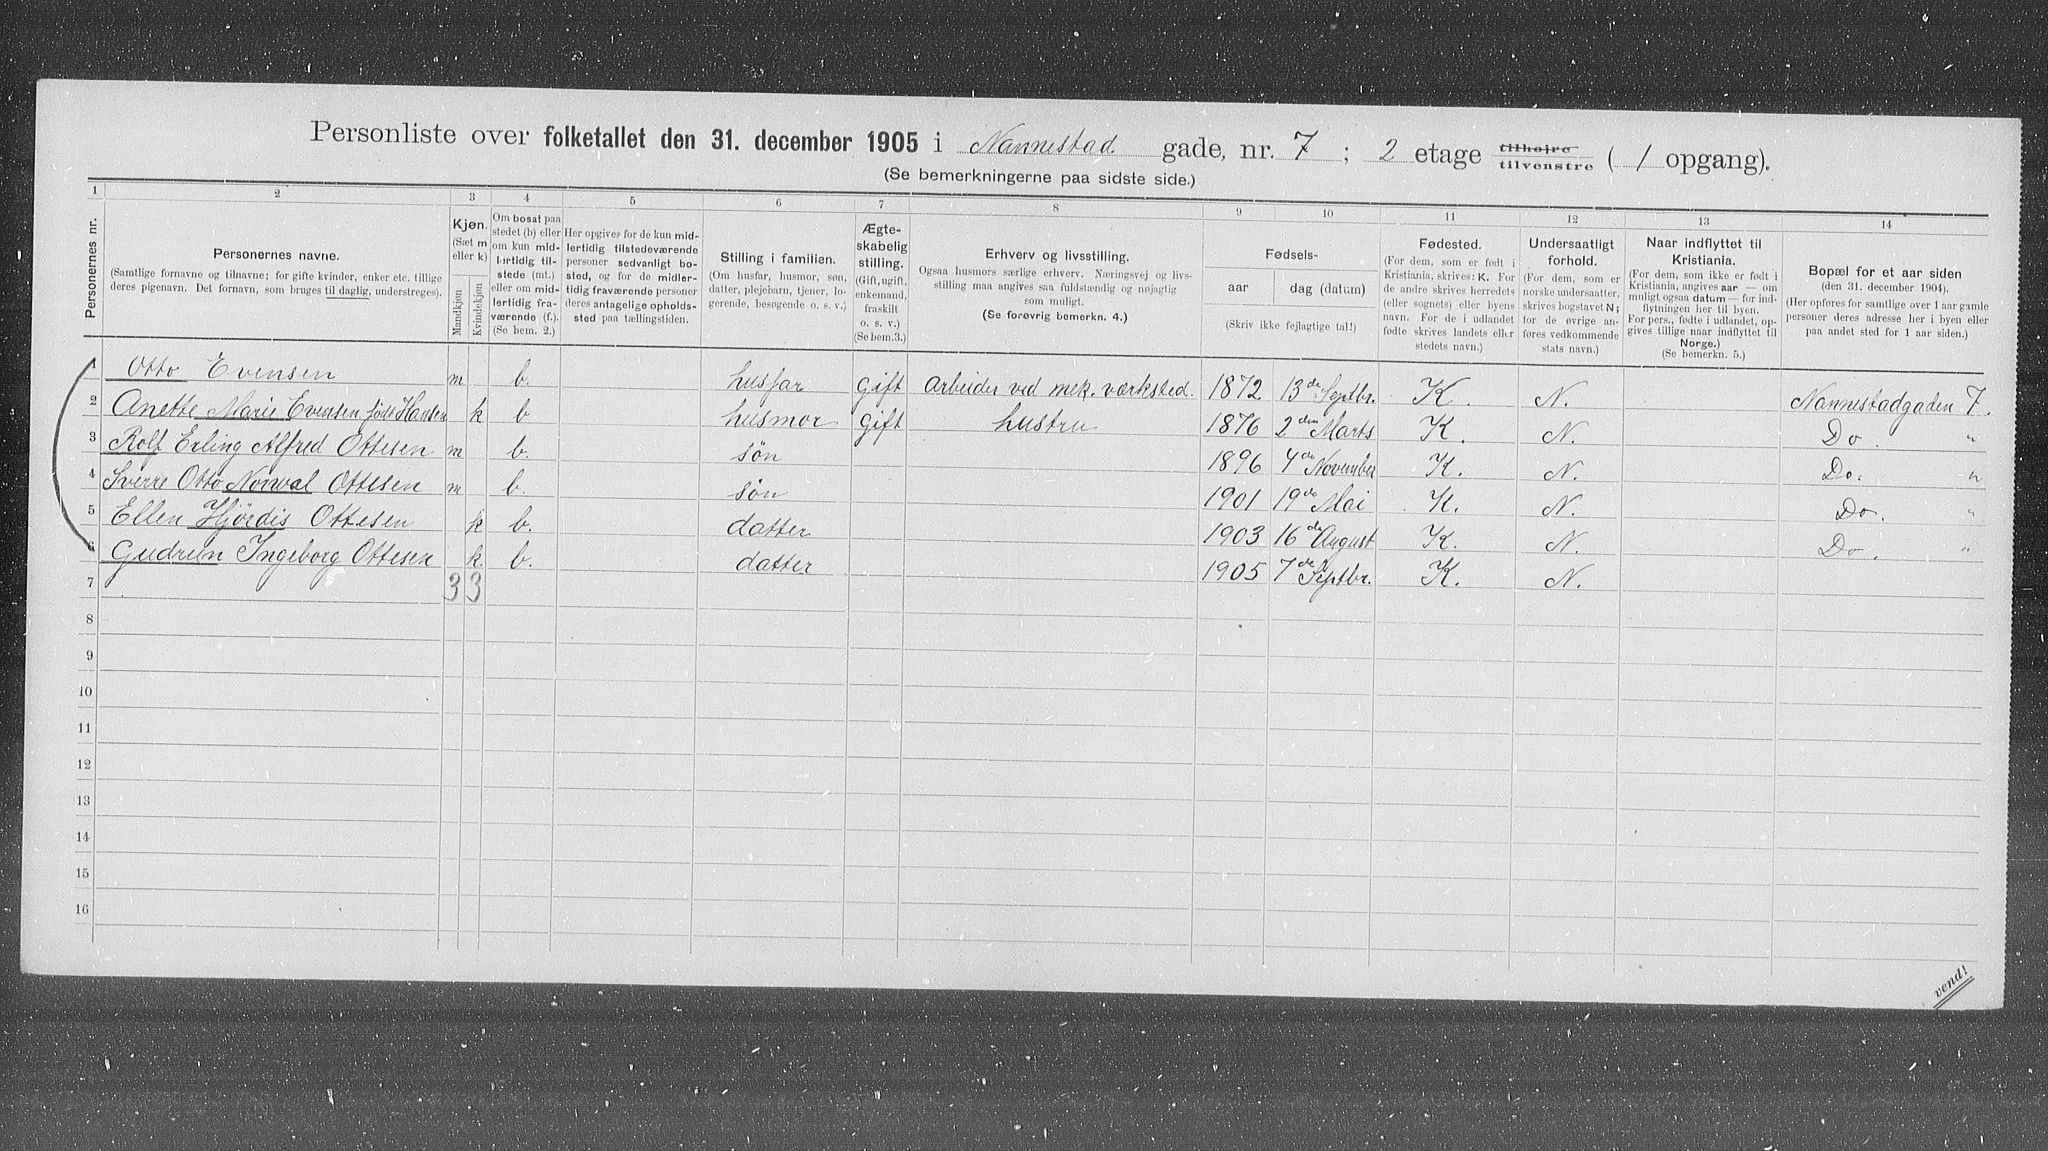 Personliste over folketallet den 31. december 1905 i Nannestad gade, nr. 7 ; 2 etage tilhøjre tilvenstre ( 1 opgang).
(Se bemerkningerne paa sidste side.)
1 2 3 4 5 6 7 8 9 10 11 12 13 14
Personernes nr.
Personernes navne.
(Samtlige fornavne og tilnavne; for gifte kvinder, enker etc. tillige
deres pigenavn. Det fornavn, som bruges til daglig, understreges).
Kjøn.
(Sæt m
eller k)
Mandkjøn
Kvindekjøn
Om bosat paa
stedet (b) eller
om kun mid-
lertidig til-
stede (mt.)
eller om mid-
lertidig fra-
værende (f.).
(Se bem. 2.)
Her opgives for de kun mid-
lertidig tilstedeværende
personer sedvanlig bo-
sted, og for de midler-
tidig fraværende personer
deres antagelige opholds-
sted paa tællingstiden.
Stilling i familien.
(Om husfar, husmor, søn,
datter, plejebarn, tjener, lo-
gerende, besøgende o. s. v.)
Ægte-
skabelig
stilling.
(Gift, ugift,
enkemand,
fraskilt
o. s. v.)
(Se bem.3.)
Erhverv og livsstilling.
Ogsaa husmors særlige erhverv. Næringsvej og livs-
stilling maa angives saa fuldstændig og nøjagtig
som muligt.
(Se forøvrig bemerkn. 4.)
Fødsels-
aar dag (datum)
(Skriv ikke fejlagtige tal!)
Fødested.
(For dem, som er født i
Kristiania, skrives: K. For
de andre skrives herredets
(eller sognets) eller byens
navn. For de i udlandet
fødte skrives landets eller
stedets navn.)
Undersaatligt
forhold.
(For dem, som er
norske undersaatter,
skrives bogstavet N;
for de øvrige an-
føres vedkommende
stats navn.)
Naar indflyttet til
Kristiania.
(For dem, som ikke er født i
Kristiania, angives aar — om
muligt ogsaa datum — for ind-
flytningen her til byen.
For pers., fødte i udlandet, op-
gives tillige naar indflyttet til
Norge.)
(Se bemerkn. 5.)
Bopæl for et aar siden
(den 31. december 1904).
(Her opføres for samtlige over 1 aar gamle
personer deres adresse her i byen eller
paa andet sted for 1 aar siden.)
1 Otto Evensen m b. husfar gift Arbeider ved mek. værksted. 1872 13de Septbr. K. N. Nannestadgaden 7.
2 Anette Marie Evensen født Hansen k b husmor gift hustru 1876 2den Marts K. N. Do. "
3 Rolf Erling Alfred Ottesen m b. søn 1896 4de November K. N. Do. "
4 Sverre Otto Norval Ottesen m b. søn 1901 19de Mai K. N. Do. "
5 Ellen Hjördis Ottesen k b. datter 1903 16de August K. N. Do. "
6 Gudrun Ingeborg Ottesen k b. datter 1905 7de Septbr. K. N.
7 3 3
8
9
10
11
12
13
14
15
16
vend!